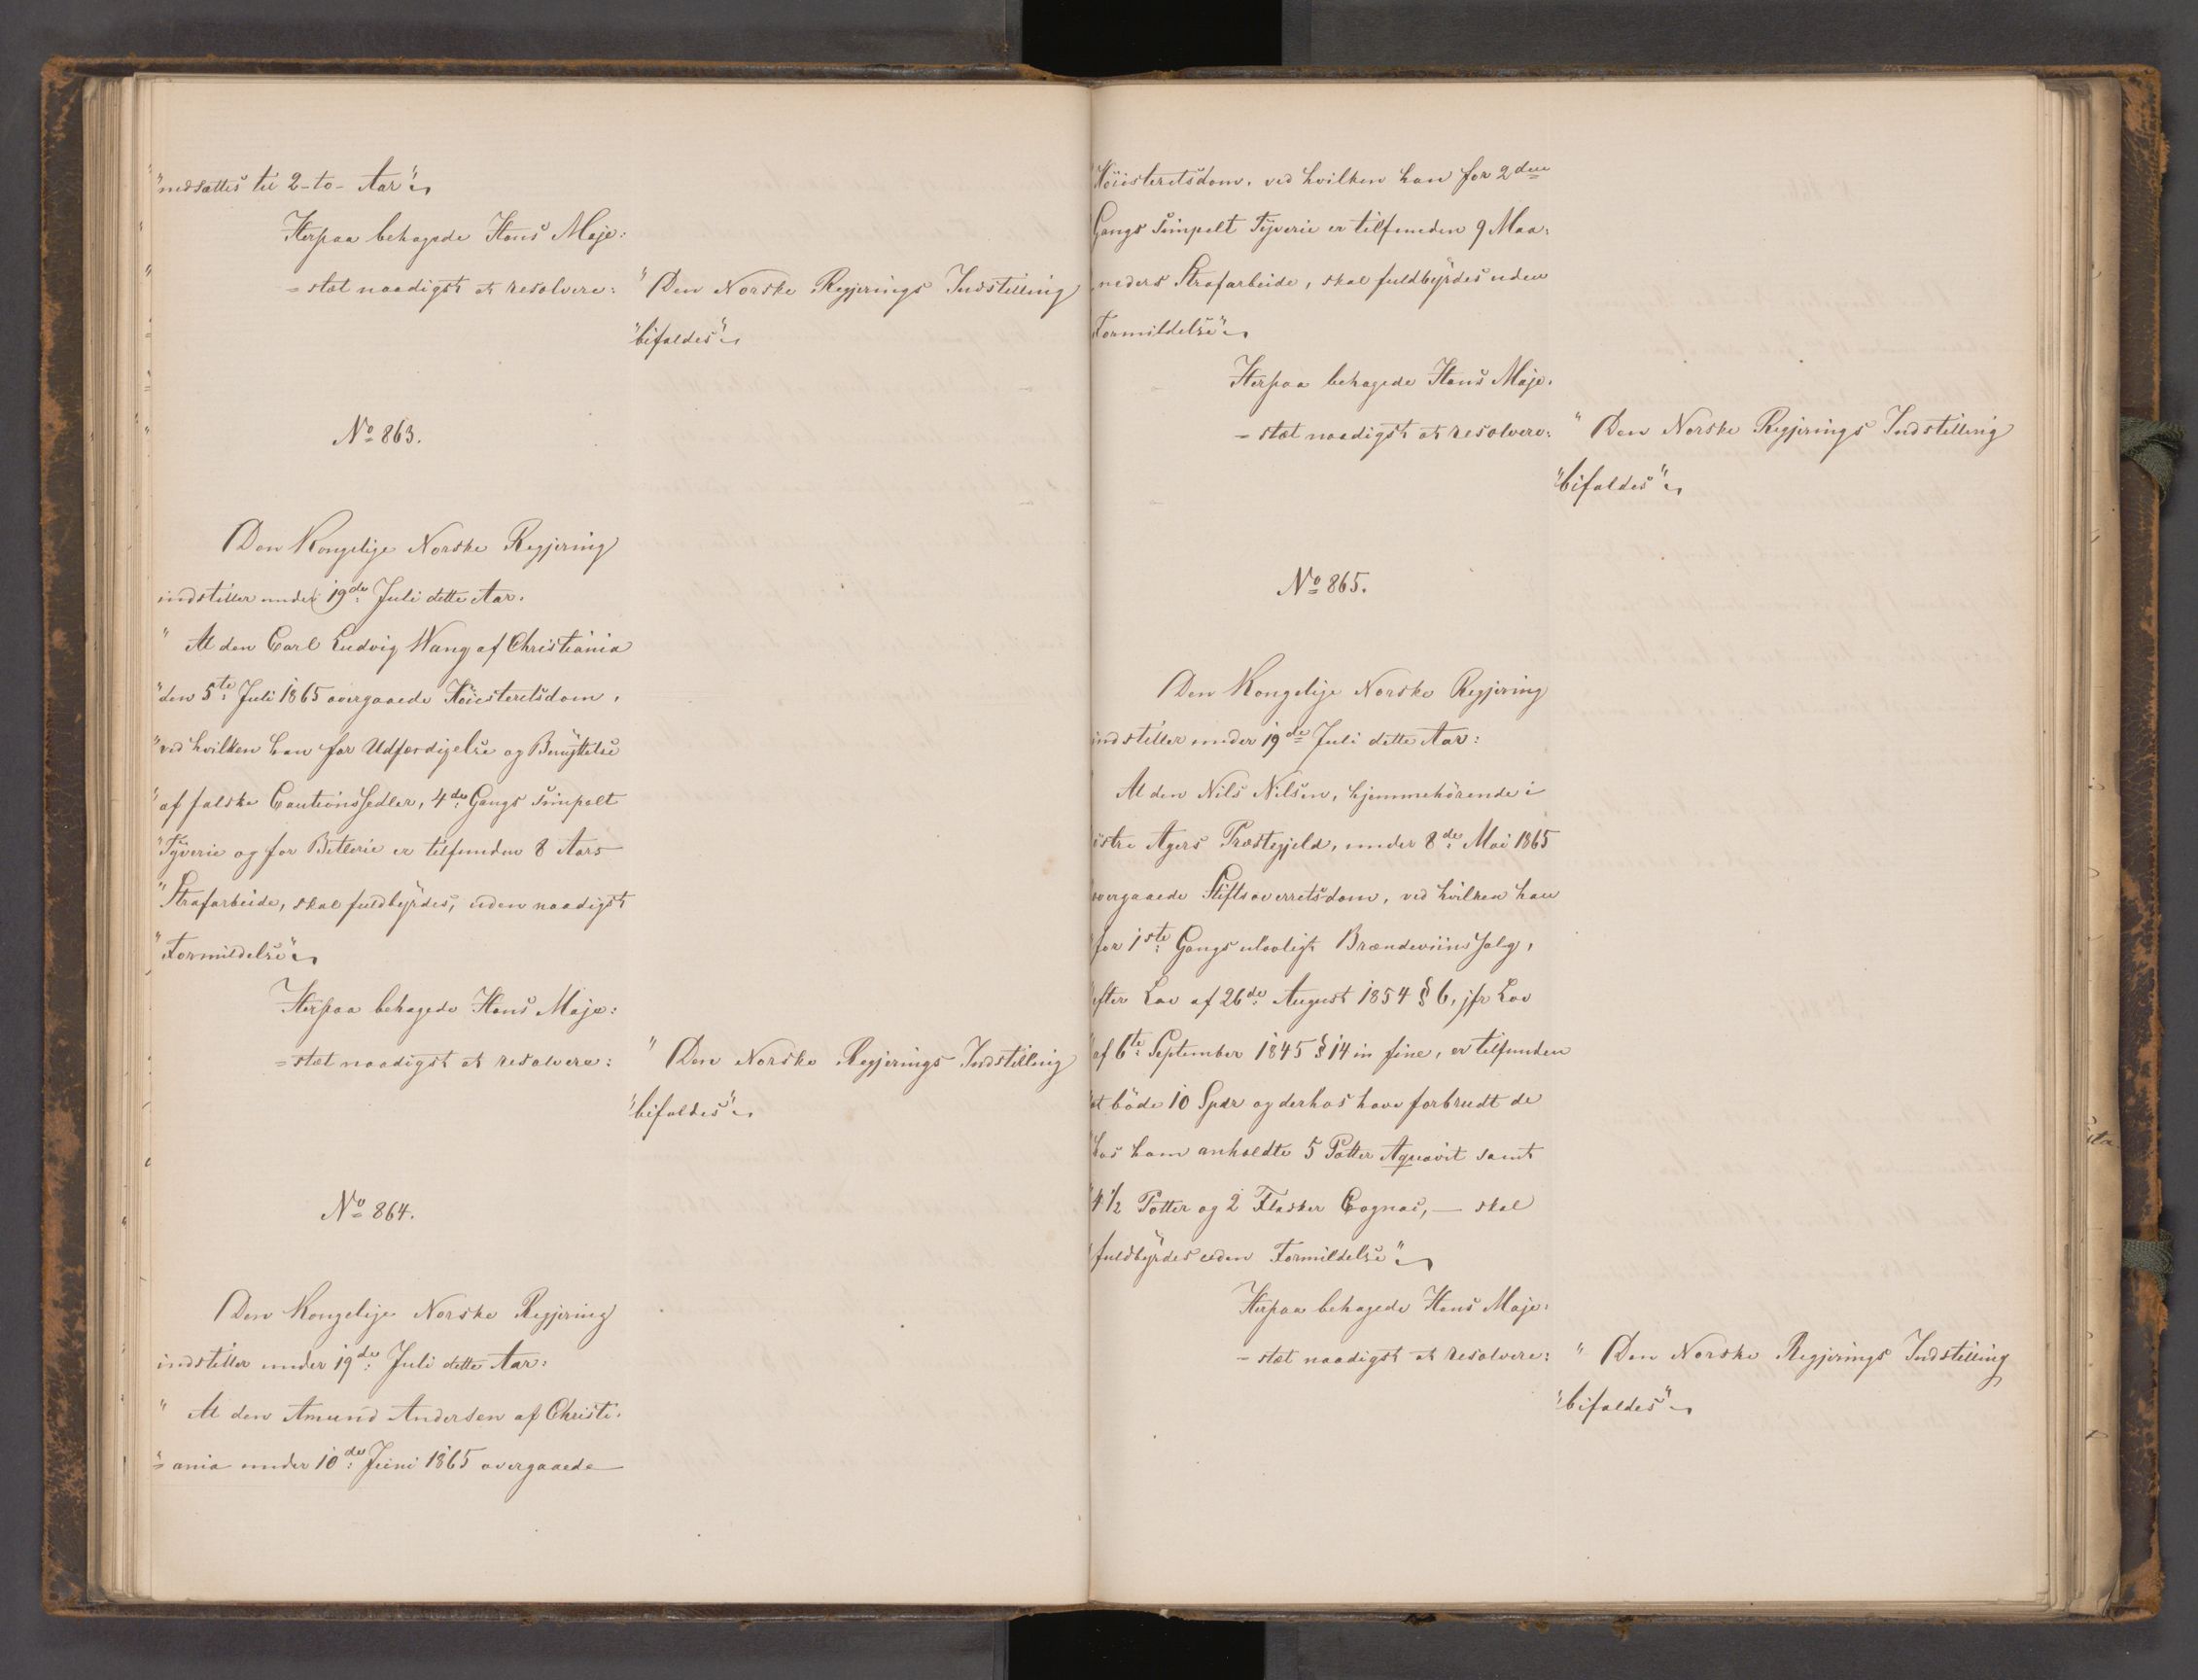 "nedsættes til 2-to- Aar"
Herpaa behagede Hans Maje:
=stæt naadigst at resolvere: "Den Norske Regjerings Indstilling
"bifaldes"
No 863.
Den Kongelige Norske Regjering
indstiller under 19de Juli dette Aar.
"At den Carl Ludvig Wang af Christiania
"den 5te Juli 1865 overgaaede Höiesteretsdom,
"ved hvilken han for Udfærdigelse og Benÿttelse
"af falske Cautionssedler, 4de Gangs simpelt
"Tÿverie og for Betlerie er tilfunden 8 Aars
"Strafarbeide, skal fuldbÿrdes, uden naadigst
"Formildelse"
Herpaa behagede Hans Maje:
=stæt naadigst at resolvere: "Den Norske Regjerings Indstilling
"bifaldes"
No 864.
Den Kongelige Norske Regjering
indstiller under 19de Juli dette Aar:
"At den Amund Andersen af Christi:
"=ania under 10de Juni 1865 overgaaede
"Höiesteretsdom, ved hvilken han for 2den
Gangs simpelt Tÿverie er tilfunden 9 Maa:
neders Strafarbeide, skal fuldbÿrdes uden
Formildelse"
Herpaa behagede Hans Maje.
=stæt naadigst at resolvere: "Den Norske Regjerings Indstilling
"bifaldes"
No 865.
Den Kongelige Norske Regjering
indstiller under 19de Juli dette Aar:
At den Nils Nilsen, hjemmehörende i
östre Agers Præstegjeld, under 8de Mai 1865
overgaaede Stiftsoverretsdom, ved hvilken han
"for 1ste Gangs ulovligt Brændeviinssalg,
"efter Lov af 26de August 1854 § 6, jfr Lov
"af 6te September 1845 § 14 in fine, er tilfunden
"at böde 10 Spdr og derhos have forbrudt de
"hos ham anholdte 5 Potter Aquavit samt
"4 1/2 Potter og 2 Flasker Cognac, — skal
"fuldbÿrdes uden Formildelse"
Herpaa behagede Hans Maje:
=stæt naadigst at resolvere: "Den Norske Regjerings Indstilling
"bifaldes"